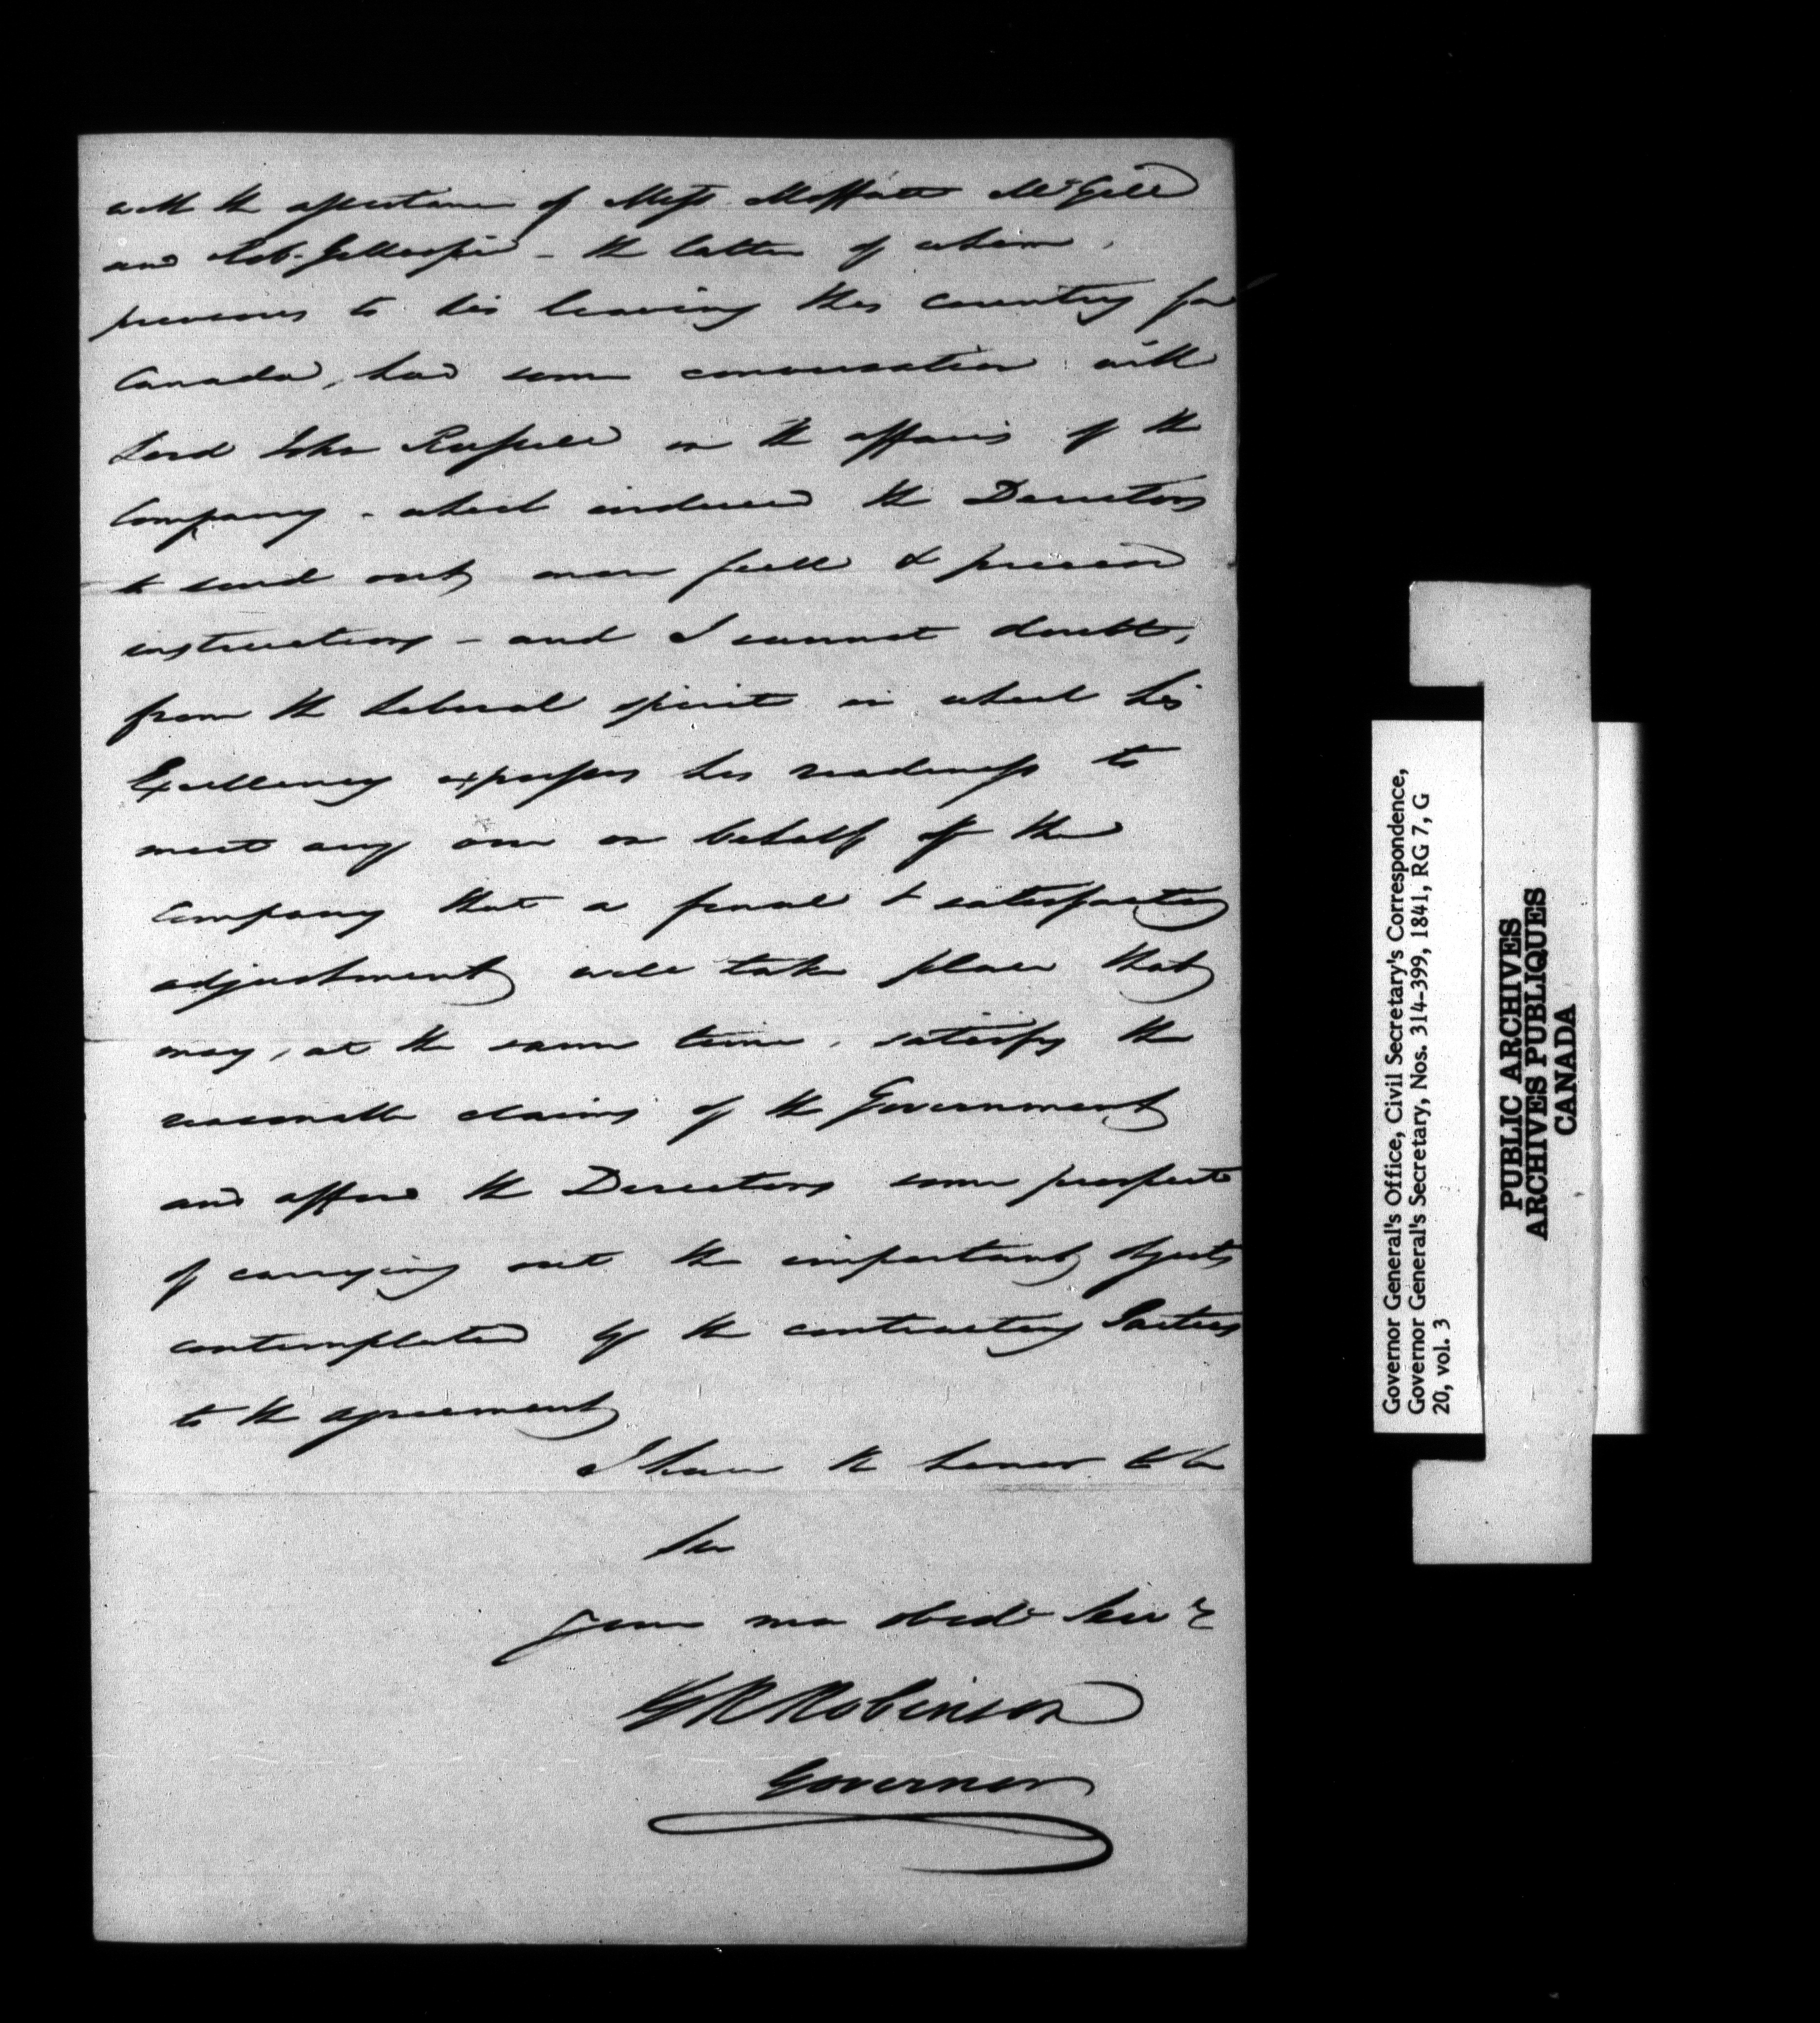 with the assistance of Mess Moffatt McGill
and Rob. Gillespie - the latter of whom,
previous to his leaving this country for
Canada, had some conversation with
Lord John Russell on the affairs of the
Company - which induced the Directors
to send out more full & precise
instructions - and I cannot doubt,
from the liberal spirit in which his
Excellency expresses his readiness to
meet any one on behalf of the
Company that a final & satisfactory
adjustment will take place that
may, at the same time, satisfy the
reasonable claims of the Government
and afford the Directors some prospect
of carrying out the important objects
contemplated by the contracting Parties
to the agreement
I have the honor to be
Sir
Your mo obedt Servt
G R Robinson
Governor
Governor General's Office, Civil Secretary's Correspondence,
Governor General's Secretary, Nos. 314-399, 1841, RG 7, G
20, vol. 3
PUBLIC ARCHIVES
ARCHIVES PUBLIQUES
CANADA